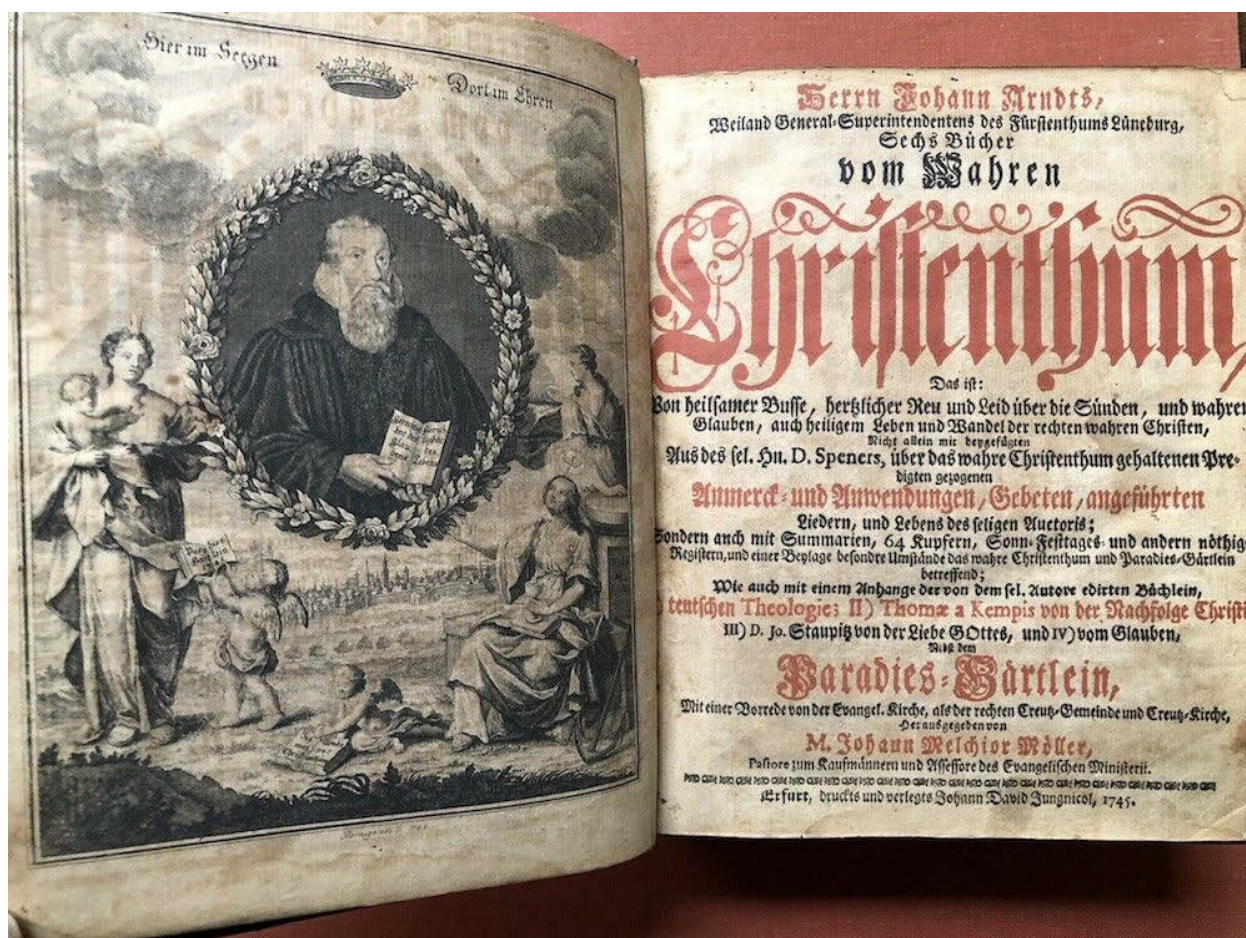 Hier im Seegen
Dort im Ehren
Herrn Johann Arndts,
Weiland General-Superintendentens des Fürstenthums Lüneburg,
Sechs Bücher
vom Wahren
Christenthum,
Das ist:
Von heilsamer Busse, hertzlicher Reu und Leid über die Sünden, und wahren
Glauben, auch heiligem Leben und Wandel der rechten wahren Christen,
Nicht allein mit beygefügten
Aus des sel. Hn. D. Speners, über das wahre Christenthum gehaltenen Pre-
digten gezogenen
Anmerck- und Anwendungen, Gebeten, angeführten
Liedern, und Lebens des seligen Auctoris;
Sondern auch mit Summarien, 64 Kupfern, Sonn- Festtages- und andern nöthig
Registern, und einer Beylage besondre Umstände das wahre Christenthum und Paradies-Gärtlein
betreffend;
Wie auch mit einem Anhange der von dem sel. Autore edirten Büchlein,
) teutschen Theologie; II) Thomæ a Kempis von der Nachfolge Christi
III) D. Jo. Staupitz von der Liebe GOttes, und IV) vom Glauben,
Nebst dem
Paradies-Gärtlein,
Mit einer Vorrede von der Evangel. Kirche, als der rechten Creutz-Gemeinde und Creutz-Kirche,
Herausgegeben von
M. Johann Melchior Möller,
Pastore zum Kaufmännern und Assessore des Evangelischen Ministerii.
Erfurt, druckts und verlegts Johann David Jungnicol, 1745.